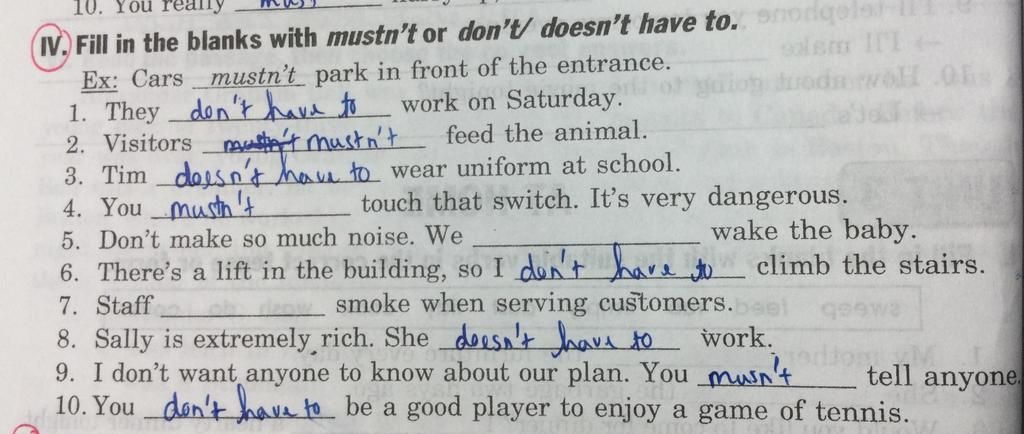 10. You really must
IV. Fill in the blanks with mustn't or don't/ doesn't have to.
Ex: Cars mustn't park in front of the entrance.
1. They don't have to work on Saturday.
2. Visitors mustn't feed the animal.
3. Tim doesn't have to wear uniform at school.
4. You mustn't touch that switch. It's very dangerous.
5. Don't make so much noise. We ____________ wake the baby.
6. There's a lift in the building, so I don't have to climb the stairs.
7. Staff ____________ smoke when serving customers.
8. Sally is extremely rich. She doesn't have to work.
9. I don't want anyone to know about our plan. You musn't tell anyone.
10. You don't have to be a good player to enjoy a game of tennis.